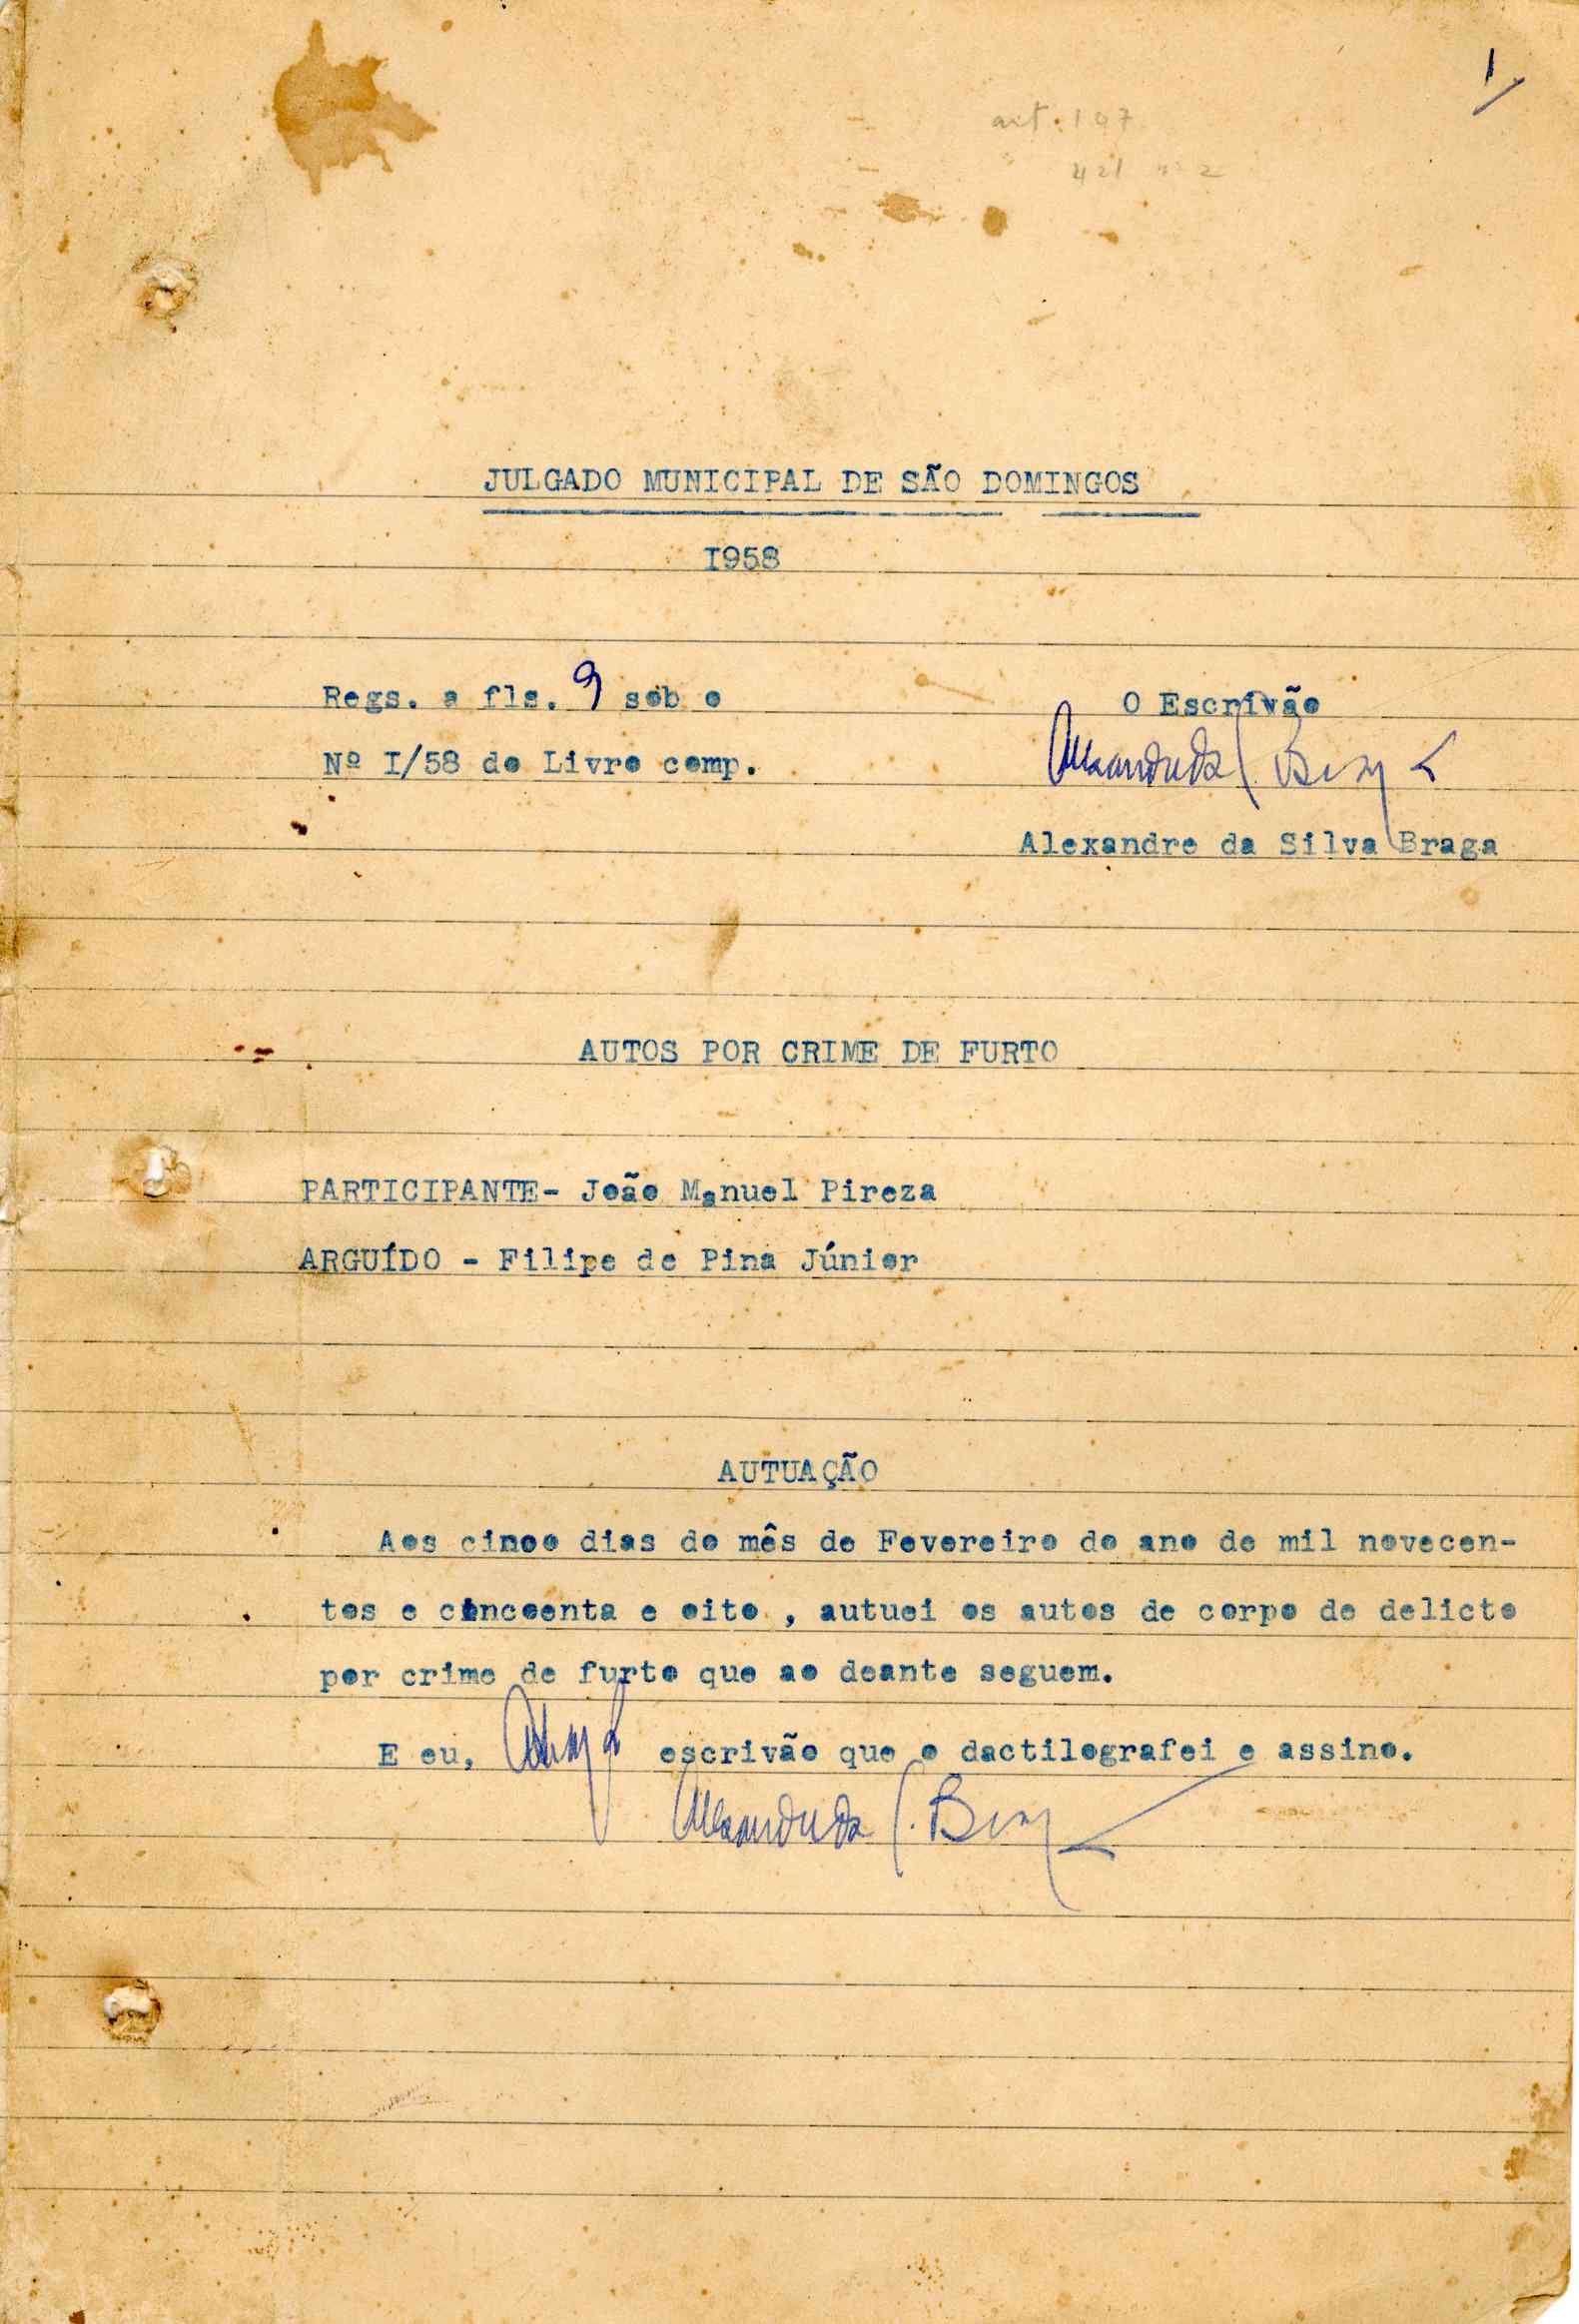 1
art. 107
421 n 2
JULGADO MUNICIPAL DE SÃO DOMINGOS
I958
Regs. a fls. 9 sob o
O Escrivão
Nº I/58 do Livro comp.
Alexandre da S. Braga
Alexandre da Silva Braga
AUTOS POR CRIME DE FURTO
PARTICIPANTE- João Manuel Pireza
ARGUÍDO - Filipe de Pina Júnior
AUTUAÇÃO
Aos cinco dias do mês de Fevereiro do ano de mil novecen-
tos e cincoenta e oito , autuei os autos de corpo de delicto
por crime de furto que ao deante seguem.
E eu, escrivão que o dactilografei e assino.
Alexandre da S. Braga